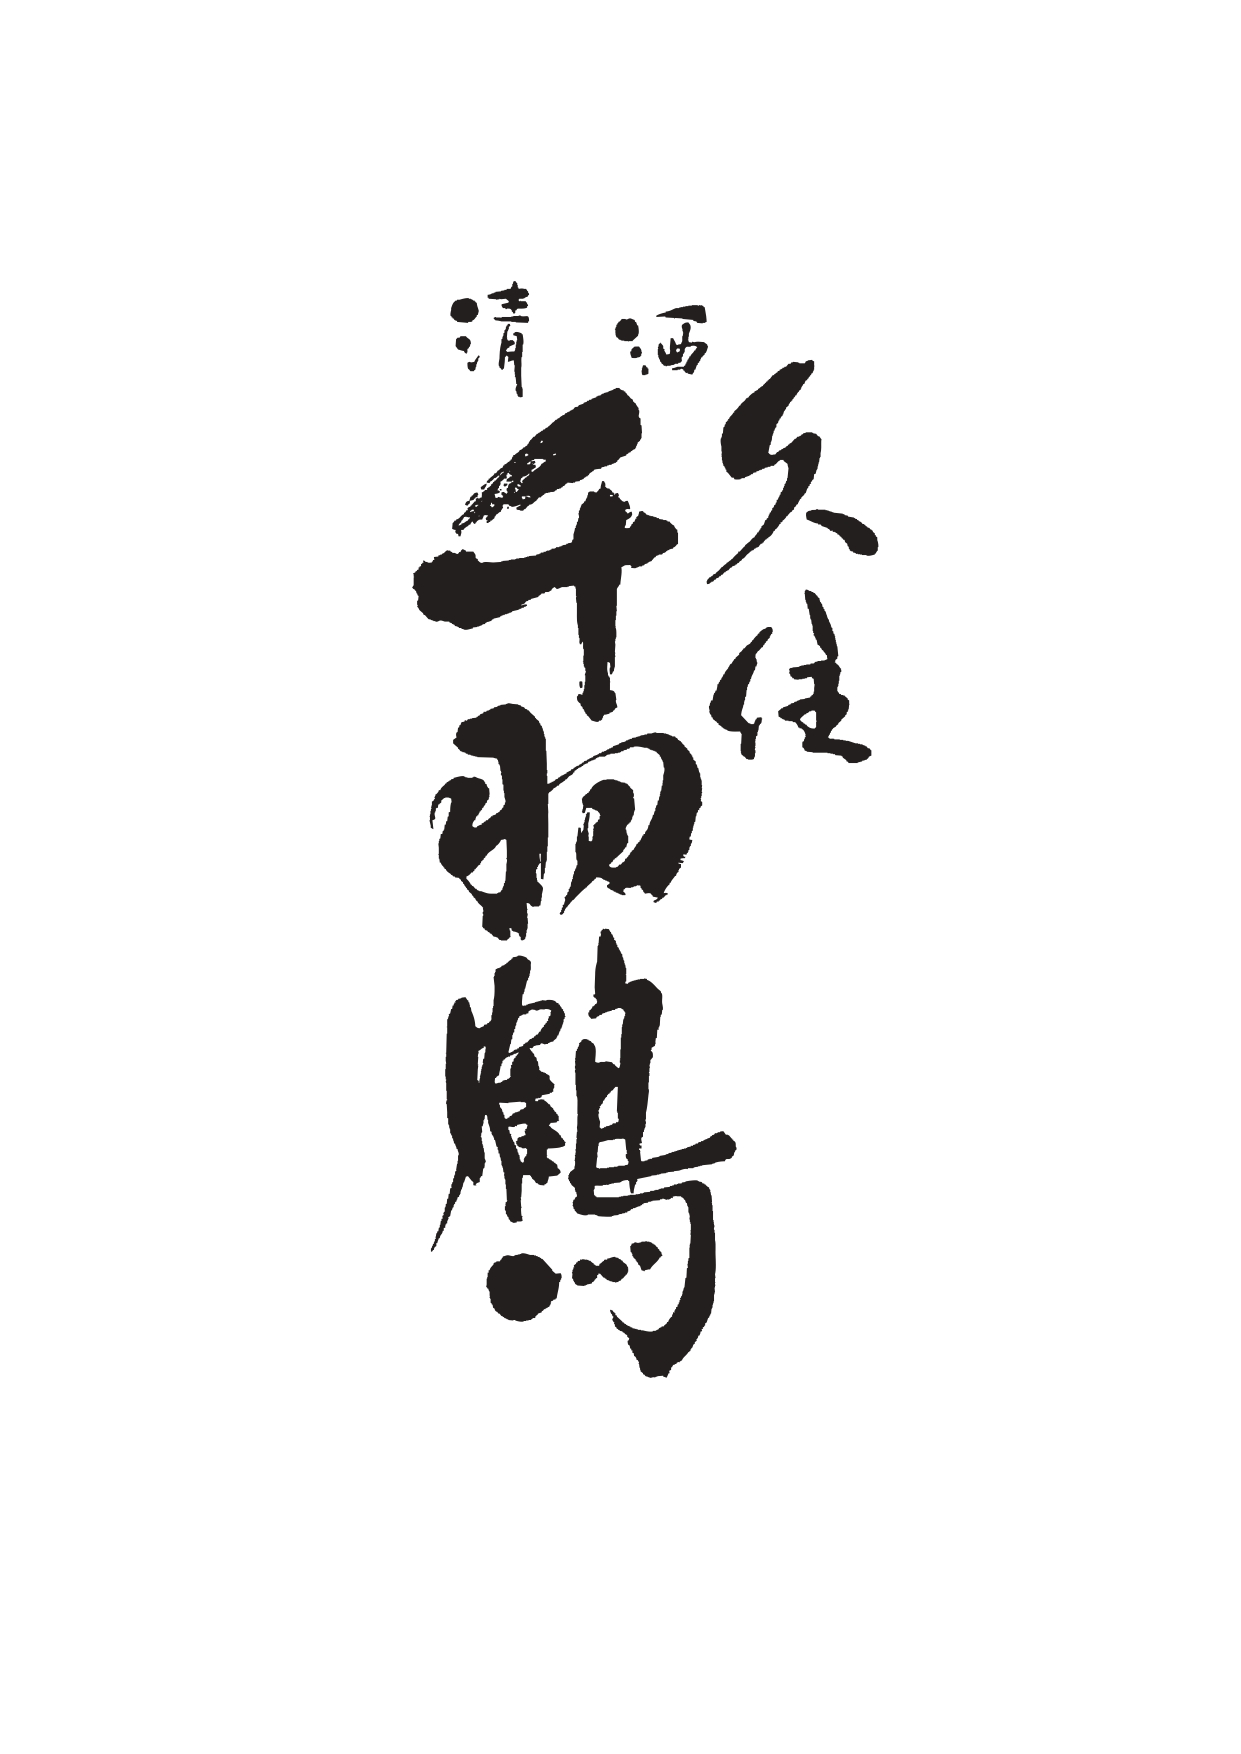 清酒
久住
千羽鶴